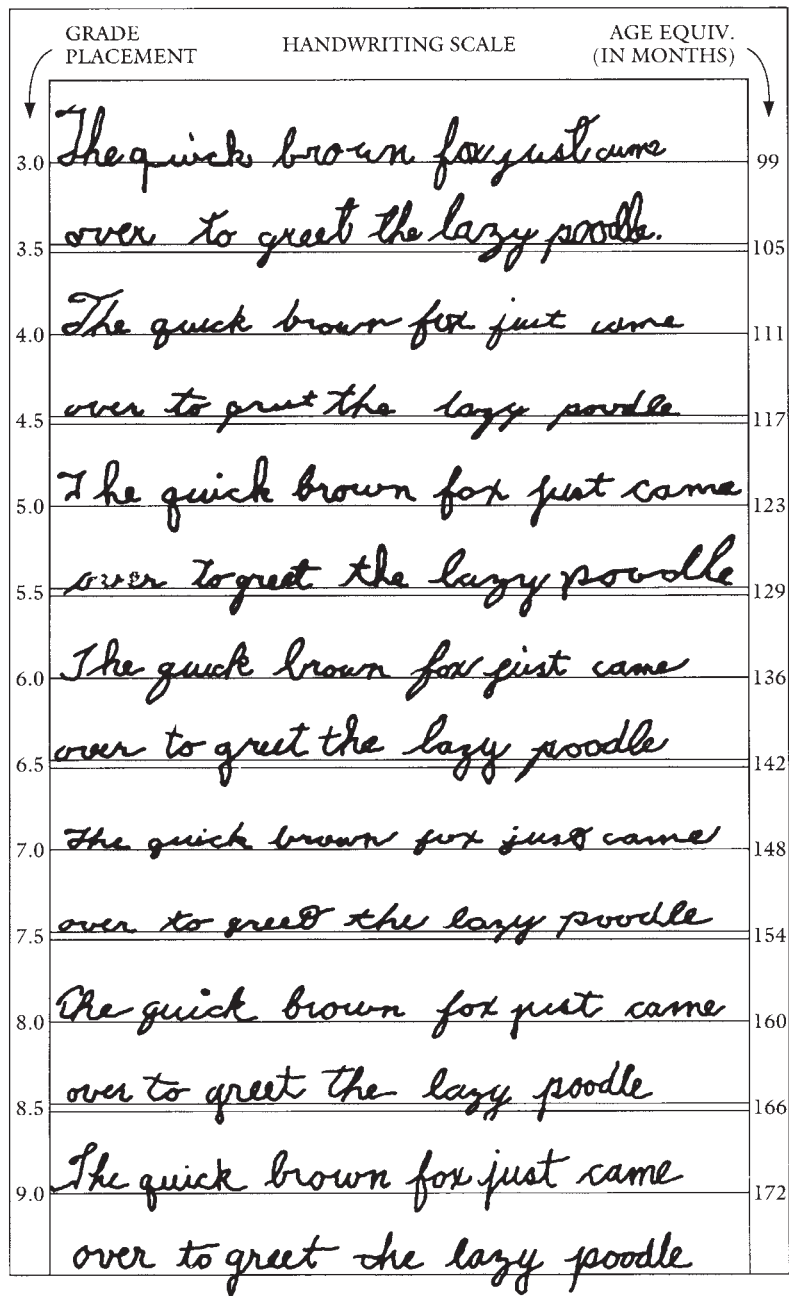 GRADE PLACEMENT HANDWRITING SCALE AGE EQUIV. (IN MONTHS)
3.0 The quick brown fox just came 99
3.5 over to greet the lazy poodle. 105
4.0 The quick brown fox just came 111
4.5 over to greet the lazy poodle 117
5.0 The quick brown fox just came 123
5.5 over to greet the lazy poodle 129
6.0 The quick brown fox just came 136
6.5 over to greet the lazy poodle 142
7.0 The quick brown fox just came 148
7.5 over to greet the lazy poodle 154
8.0 The quick brown fox just came 160
8.5 over to greet the lazy poodle 166
9.0 The quick brown fox just came 172
over to greet the lazy poodle